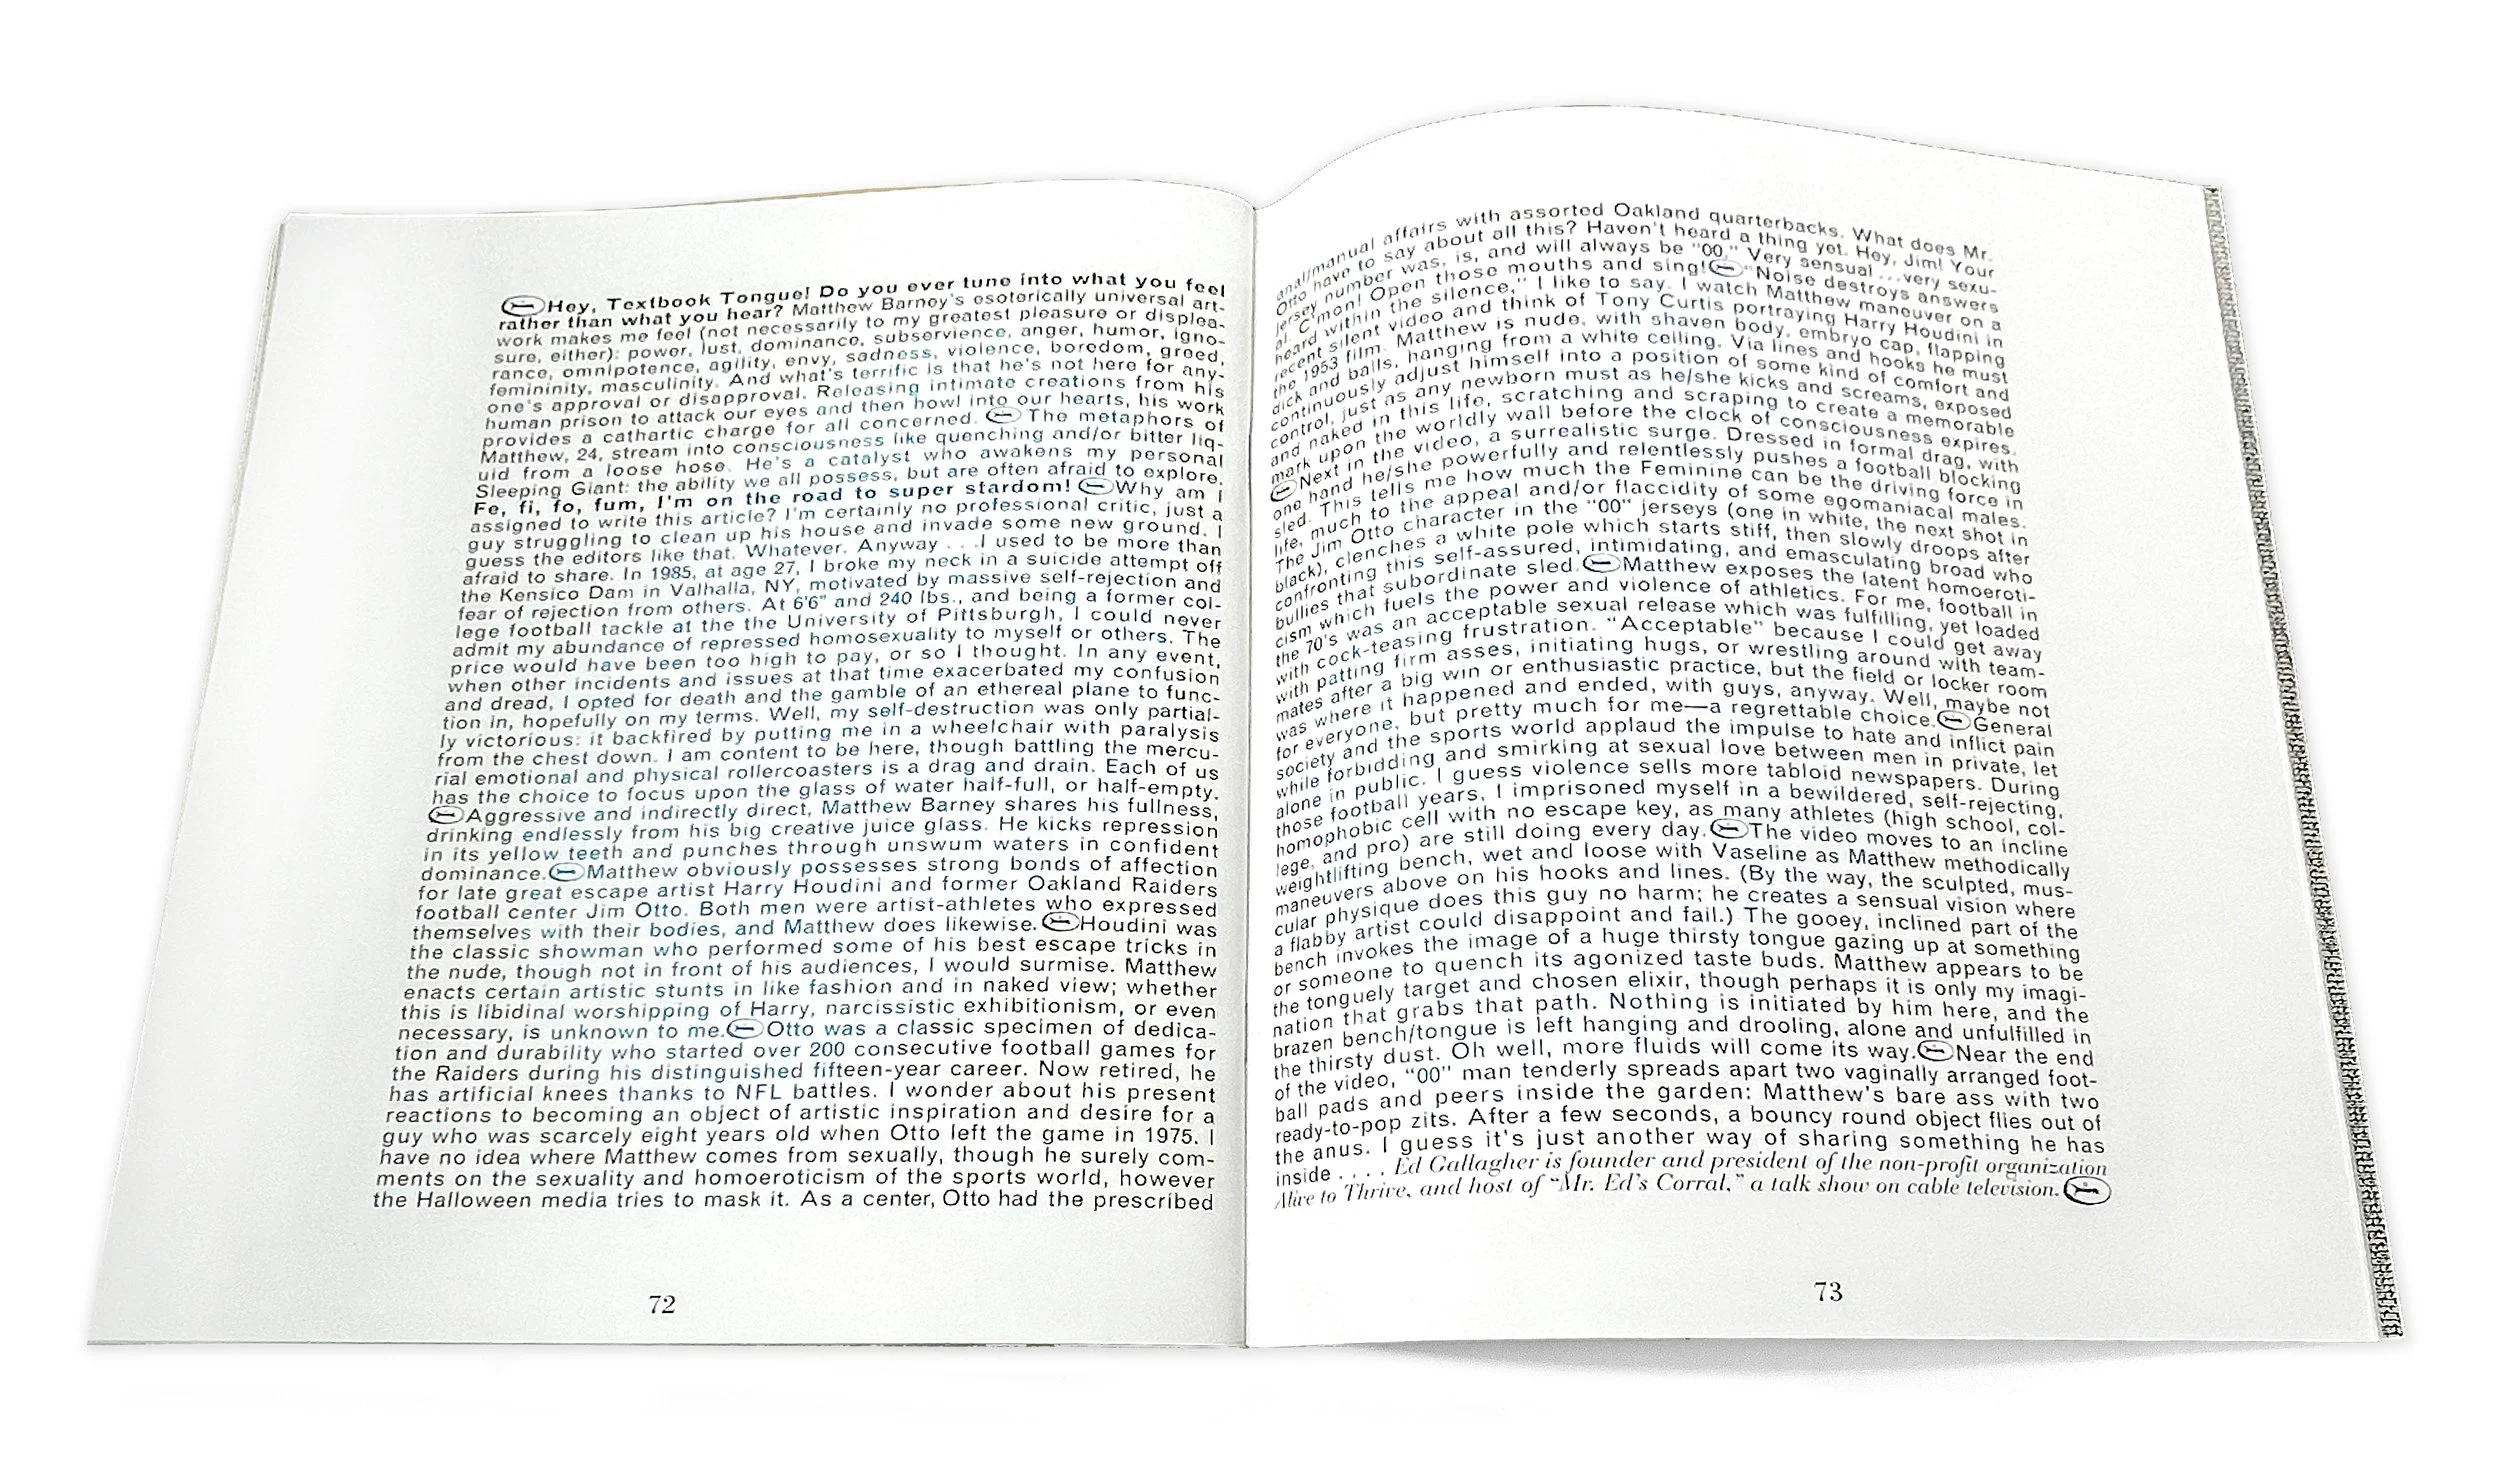 Hey, Textbook Tongue! Do you ever tune into what you feel
rather than what you hear? Matthew Barney's esoterically universal art-
work makes me feel (not necessarily to my greatest pleasure or displea-
sure, either): power, lust, dominance, subservience, anger, humor, igno-
rance, omnipotence, agility, envy, sadness, violence, boredom, greed,
femininity, masculinity. And what's terrific is that he's not here for any-
one's approval or disapproval. Releasing intimate creations from his
human prison to attack our eyes and then howl into our hearts, his work
provides a cathartic charge for all concerned. The metaphors of
Matthew, 24, stream into consciousness like quenching and/or bitter liq-
uid from a loose hose. He's a catalyst who awakens my personal
Sleeping Giant: the ability we all possess, but are often afraid to explore.
Fe, fi, fo, fum, I'm on the road to super stardom! Why am I
assigned to write this article? I'm certainly no professional critic, just a
guy struggling to clean up his house and invade some new ground. I
guess the editors like that. Whatever. Anyway . . .I used to be more than
afraid to share. In 1985, at age 27, I broke my neck in a suicide attempt off
the Kensico Dam in Valhalla, NY, motivated by massive self-rejection and
fear of rejection from others. At 6'6" and 240 lbs., and being a former col-
lege football tackle at the the University of Pittsburgh, I could never
admit my abundance of repressed homosexuality to myself or others. The
price would have been too high to pay, or so I thought. In any event,
when other incidents and issues at that time exacerbated my confusion
and dread, I opted for death and the gamble of an ethereal plane to func-
tion in, hopefully on my terms. Well, my self-destruction was only partial-
ly victorious: it backfired by putting me in a wheelchair with paralysis
from the chest down. I am content to be here, though battling the mercu-
rial emotional and physical rollercoasters is a drag and drain. Each of us
has the choice to focus upon the glass of water half-full, or half-empty.
Aggressive and indirectly direct, Matthew Barney shares his fullness,
drinking endlessly from his big creative juice glass. He kicks repression
in its yellow teeth and punches through unswum waters in confident
dominance. Matthew obviously possesses strong bonds of affection
for late great escape artist Harry Houdini and former Oakland Raiders
football center Jim Otto. Both men were artist-athletes who expressed
themselves with their bodies, and Matthew does likewise. Houdini was
the classic showman who performed some of his best escape tricks in
the nude, though not in front of his audiences, I would surmise. Matthew
enacts certain artistic stunts in like fashion and in naked view; whether
this is libidinal worshipping of Harry, narcissistic exhibitionism, or even
necessary, is unknown to me. Otto was a classic specimen of dedica-
tion and durability who started over 200 consecutive football games for
the Raiders during his distinguished fifteen-year career. Now retired, he
has artificial knees thanks to NFL battles. I wonder about his present
reactions to becoming an object of artistic inspiration and desire for a
guy who was scarcely eight years old when Otto left the game in 1975. I
have no idea where Matthew comes from sexually, though he surely com-
ments on the sexuality and homoeroticism of the sports world, however
the Halloween media tries to mask it. As a center, Otto had the prescribed
72
anal/manual affairs with assorted Oakland quarterbacks. What does Mr.
Otto have to say about all this? Haven't heard a thing yet. Hey, Jim! Your
jersey number was, is, and will always be "00." Very sensual ...very sexu-
al. C'mon! Open those mouths and sing! "Noise destroys answers
heard within the silence," I like to say. I watch Matthew maneuver on a
recent silent video and think of Tony Curtis portraying Harry Houdini in
the 1953 film. Matthew is nude, with shaven body, embryo cap, flapping
dick and balls, hanging from a white ceiling. Via lines and hooks he must
continuously adjust himself into a position of some kind of comfort and
control, just as any newborn must as he/she kicks and screams, exposed
and naked in this life, scratching and scraping to create a memorable
mark upon the worldly wall before the clock of consciousness expires.
Next in the video, a surrealistic surge. Dressed in formal drag, with
one hand he/she powerfully and relentlessly pushes a football blocking
sled. This tells me how much the Feminine can be the driving force in
life, much to the appeal and/or flaccidity of some egomaniacal males.
The Jim Otto character in the "00" jerseys (one in white, the next shot in
black), clenches a white pole which starts stiff, then slowly droops after
confronting this self-assured, intimidating, and emasculating broad who
bullies that subordinate sled. Matthew exposes the latent homoeroti-
cism which fuels the power and violence of athletics. For me, football in
the 70's was an acceptable sexual release which was fulfilling, yet loaded
with cock-teasing frustration. "Acceptable" because I could get away
with patting firm asses, initiating hugs, or wrestling around with team-
mates after a big win or enthusiastic practice, but the field or locker room
was where it happened and ended, with guys, anyway. Well, maybe not
for everyone, but pretty much for me—a regrettable choice. General
society and the sports world applaud the impulse to hate and inflict pain
while forbidding and smirking at sexual love between men in private, let
alone in public. I guess violence sells more tabloid newspapers. During
those football years, I imprisoned myself in a bewildered, self-rejecting,
homophobic cell with no escape key, as many athletes (high school, col-
lege, and pro) are still doing every day. The video moves to an incline
weightlifting bench, wet and loose with Vaseline as Matthew methodically
maneuvers above on his hooks and lines. (By the way, the sculpted, mus-
cular physique does this guy no harm; he creates a sensual vision where
a flabby artist could disappoint and fail.) The gooey, inclined part of the
bench invokes the image of a huge thirsty tongue gazing up at something
or someone to quench its agonized taste buds. Matthew appears to be
the tonguely target and chosen elixir, though perhaps it is only my imagi-
nation that grabs that path. Nothing is initiated by him here, and the
brazen bench/tongue is left hanging and drooling, alone and unfulfilled in
the thirsty dust. Oh well, more fluids will come its way. Near the end
of the video, "00" man tenderly spreads apart two vaginally arranged foot-
ball pads and peers inside the garden: Matthew's bare ass with two
ready-to-pop zits. After a few seconds, a bouncy round object flies out of
the anus. I guess it's just another way of sharing something he has
inside . . . . Ed Gallagher is founder and president of the non-profit organization
Alive to Thrive, and host of "Mr. Ed's Corral," a talk show on cable television.
73